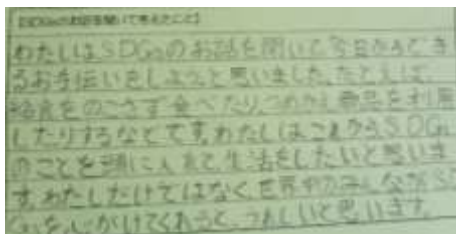 【SDGsのお話を聞いて考えたこと】
わたしはSDGsのお話を聞いて今日からでき
るお手伝いをしようと思いました。たとえば、
給食をのこさず食べたり、商品を利用
したりするなどです。わたしはこれからSDGs
のことを頭に入れて生活をしたいと思いま
す。わたしだけではなく世界中のみんながSD
Gsを心がけてくれると、うれしいと思います。